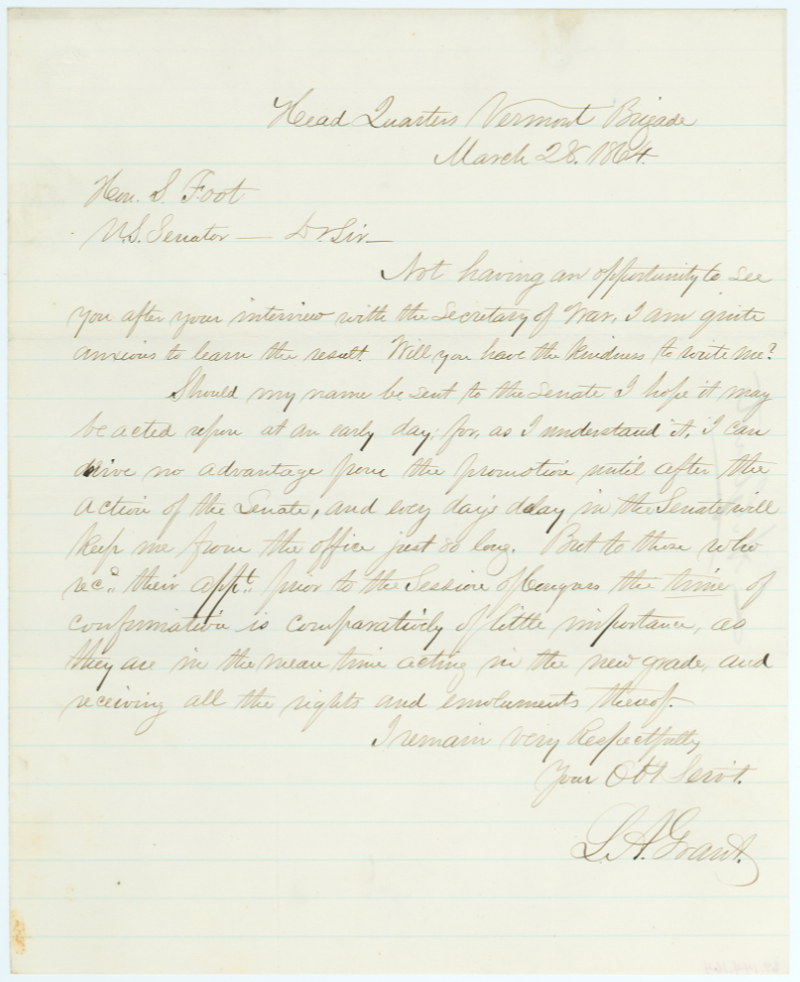 Head Quarters Vermont Brigade
March 28. 1864.
Hon. S. Foot
U.S. Senator — Dr. Sir —
Not having an opportunity to see
you after your interview with the Secretary of War, I am quite
anxious to learn the result. Will you have the kindness to write me?
Should my name be sent to the Senate I hope it may
be acted upon at an early day; for, as I understand it, I can
derive no advantage from the promotion until after the
action of the Senate, and every days delay in the Senate will
keep me from the office just so long. But to those who
recd. their appt. prior to the Session of Congress the time of
confirmation is comparatively of little importance, as
they are in the mean time acting in the new grade, and
receiving all the rights and emoluments thereof.
I remain very Respectfully
Your Obt Servt.
L. A. Grant.